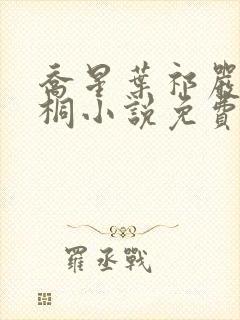 喬星葉祁嚴
桐小說免費
羅丞戰